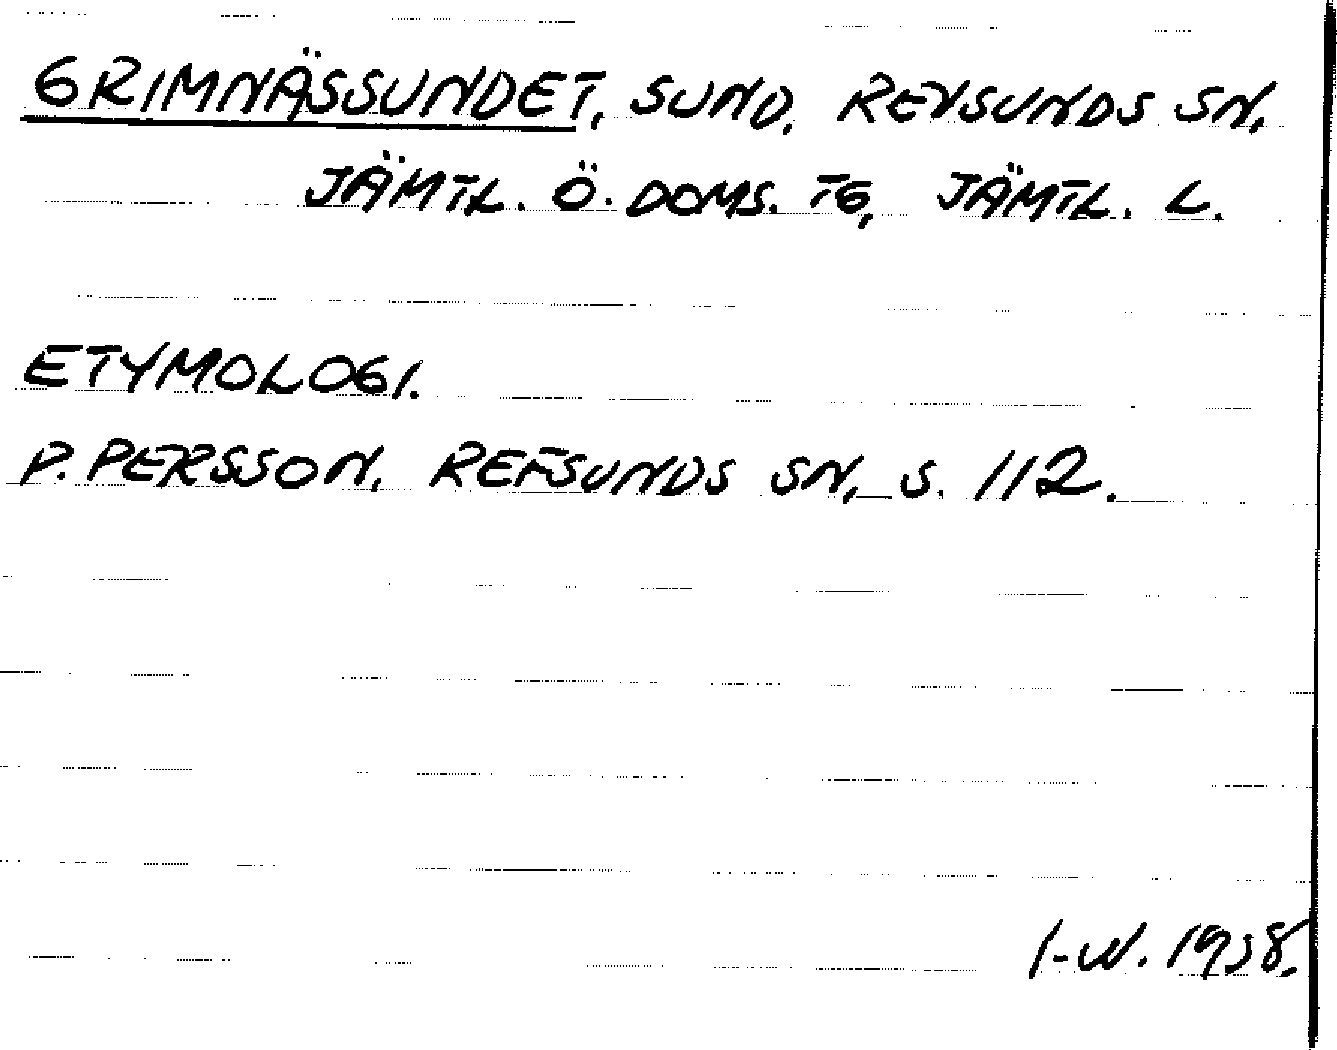 GRIMNÄSSUNDET, SUND, REVSUNDS SN,
JÄMTL. Ö. DOMS. TG, JÄMTL. L.
ETYMOLOGI.
P. PERSSON, REFSUNDS SN, S. 112.
I-W. 1938.